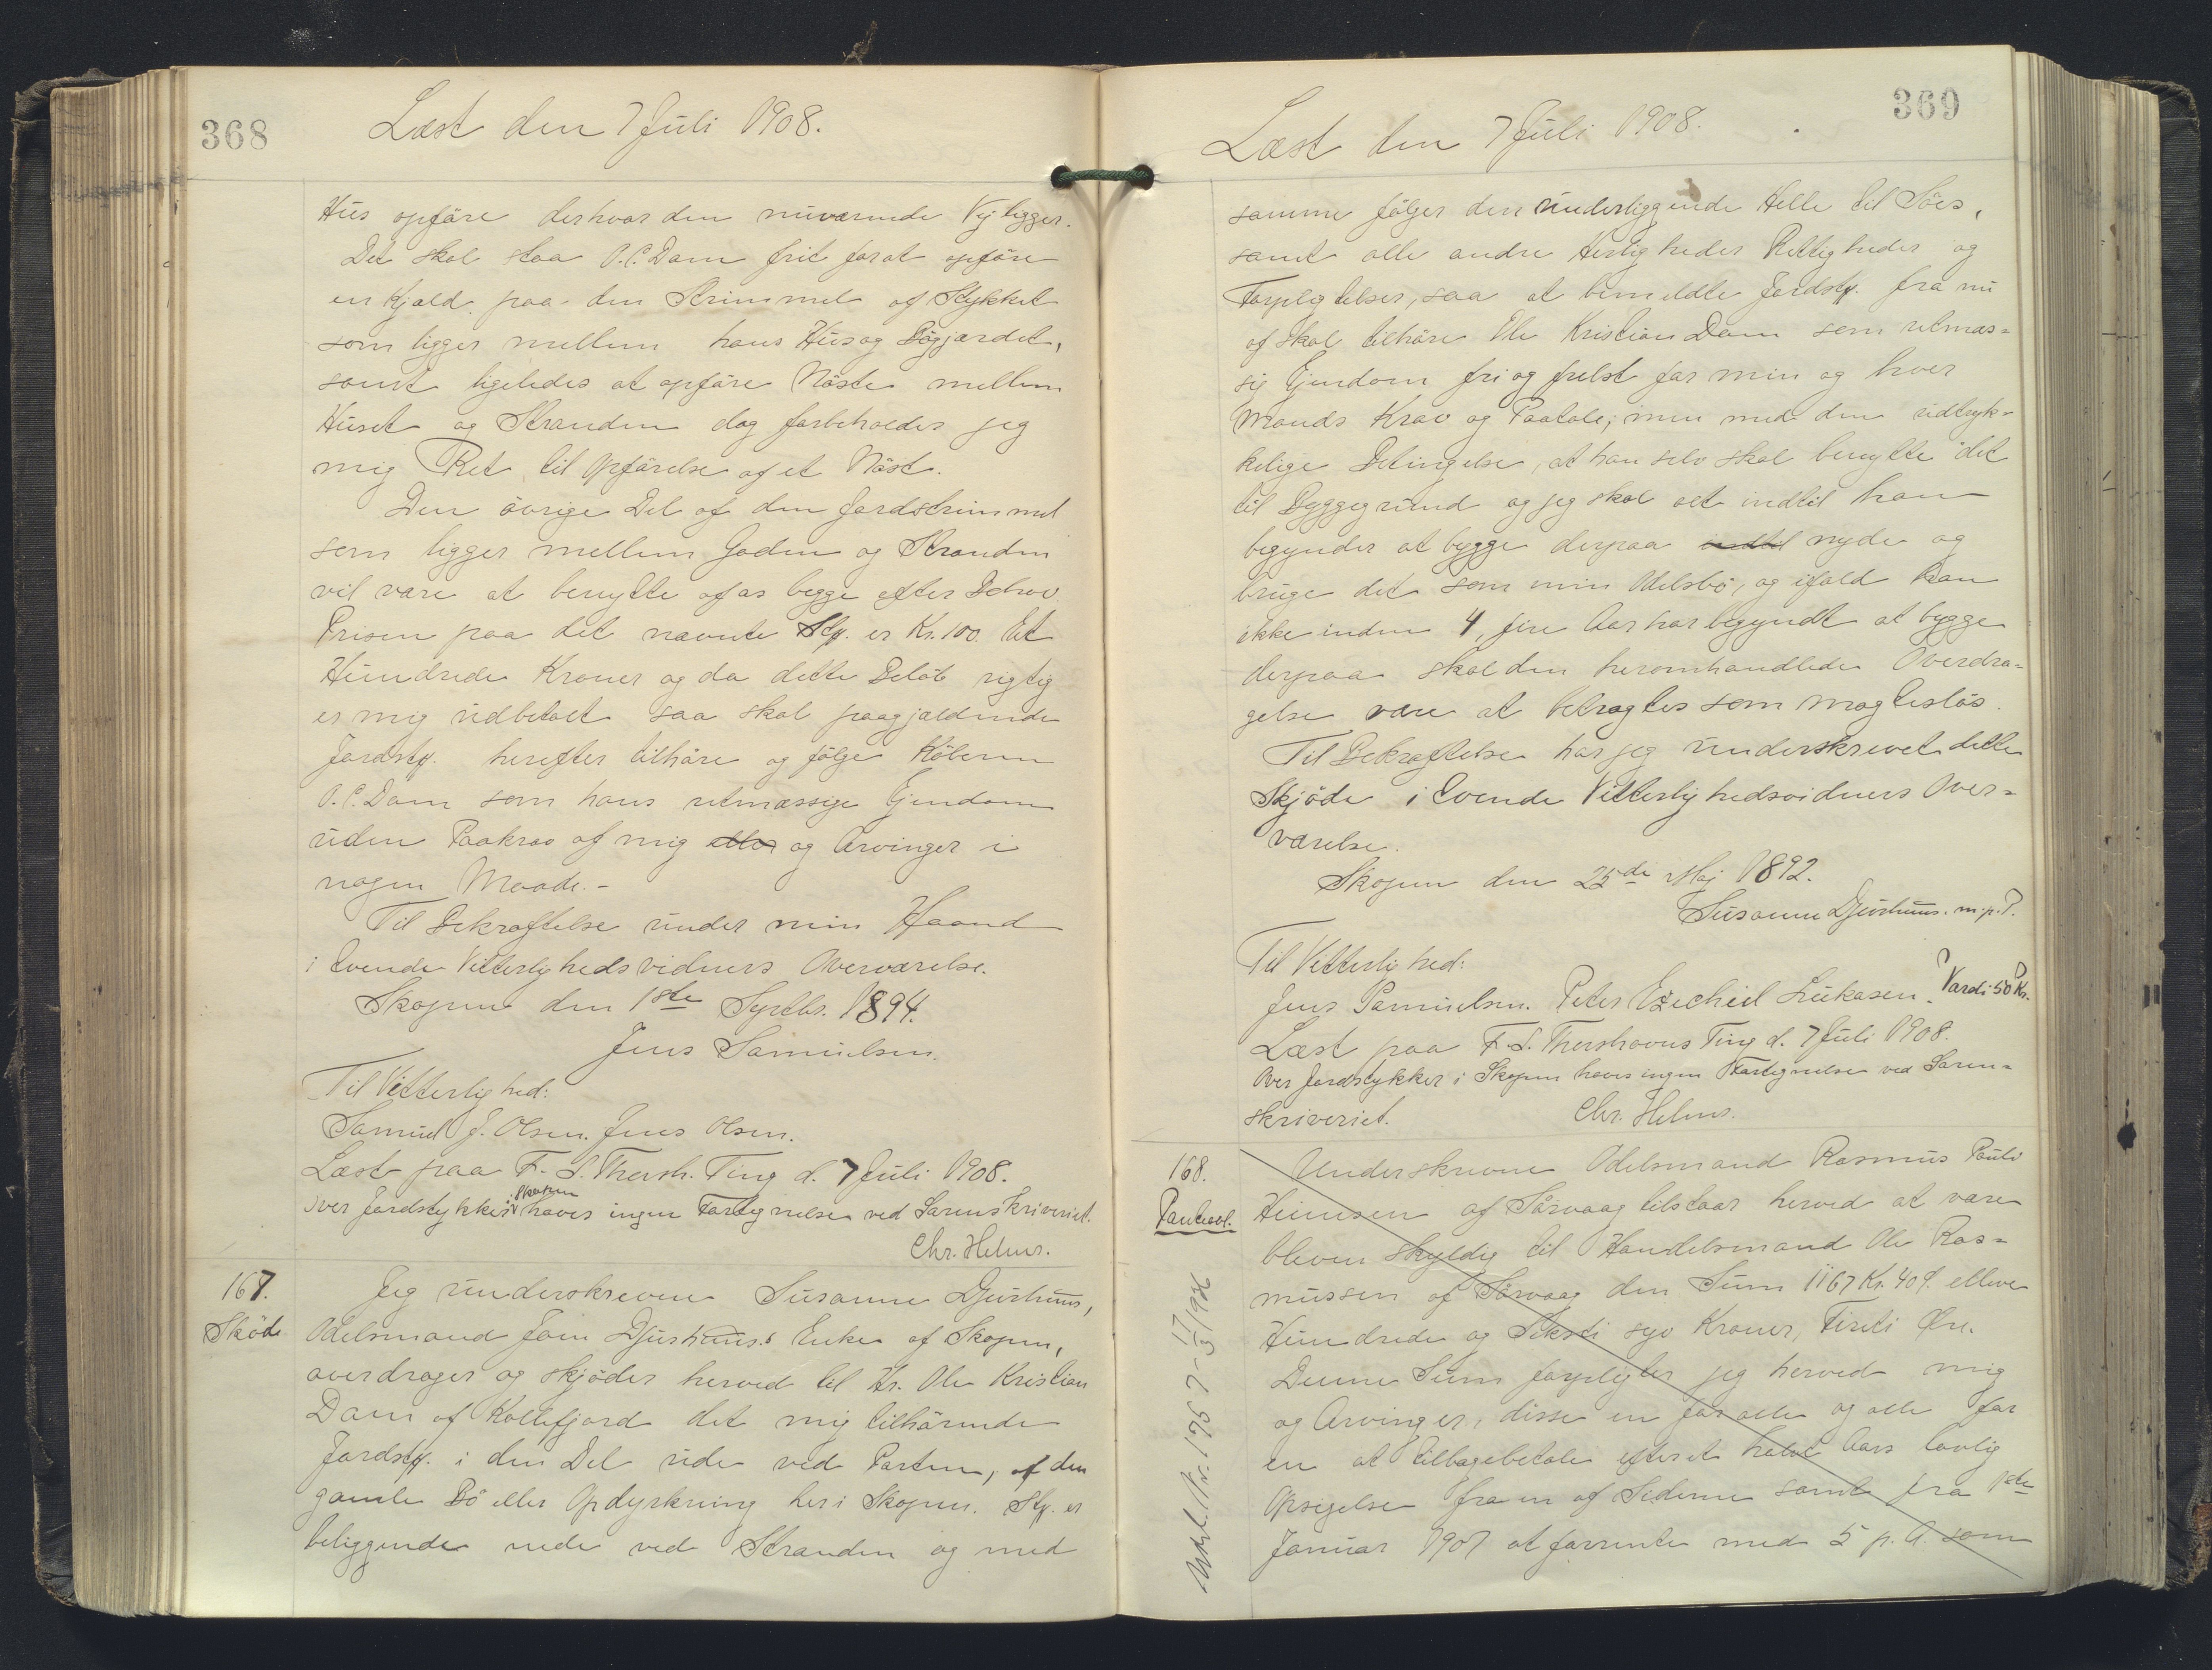 368
Læst den 7 Juli 1908.
Hus opføre derhvor den nuværende Vej ligger.
Det skal staa O.C. Dam frit for at opføre
en Kjeld. paa den Strimmel af Stykket
som ligger mellem hans Hus og Bøgjærdet,
samt ligeledes at opføre Nöste mellem
Huset og Stranden dog forbeholder jeg
mig Ret til Opförelse af et Nöst.
Den övrige Del af den Jordstrimmel
som ligger mellem Gaden og Stranden
vil være at benytte af os begge efter Behov.
Prisen paa det nævnte Stk. er Kr. 100. Et
Hundrede Kroner og da dette Belöb rigtig
er mig udbetalt saa skal paagjældende
Jordstk. herefter tilhöre og fölge Köberen
O.C. Dam som hans retmæssige Ejendom
uden Paakrav af mig eller og Arvinger i
nogen Maade.-
Til Bekræftelse under min Haand
i tvende Vitterlighedsvidners Overværelse.
Skopun den 1ste Septbr. 1894.
Jens Samuelsen.
Til Vitterlighed:
Samuel J. Olsen. Jens Olsen.
Læst paa F. S. Thorsh. Ting d. 7 Juli 1908.
Over Jordstykker i Skopun haves ingen Fortegnelse ved Sorenskriveriet.
Chr. Helms.
167.
Sköde
Jeg underskrevne Susanne Djurhuus,
Odelsmand Joen Djurhuus.s Enke af Skopun,
overdrager og skjöder herved til Hr. Ole Kristian
Dam af Kollefjord det mig tilhörende
Jordstk. i den Del ude ved Parten, af den
gamle Bö eller Opdyrkning her i Skopun. Stk. er
beliggende nede ved Stranden og med
369
Læst den 7 Juli 1908.
samme fölger den underliggende Helle til Söes,
samt alle andre Herligheder Rettigheder og
Forpligtelser, saa at bemeldte Jordstk. fra nu
af skal tilhöre Ole Kristian Dam som retmæs=
sig Ejendom fri og frelst for min og hver
Mands Krav og Paatale; men med den udtryk=
kelige Betingelse, at han selv skal benytte det
til Byggegrund og jeg skal alt indtil han
begynder at bygge derpaa indtil nyde og
bruge det som min Odelsbö, og ifald han
ikke inden 4, fire Aar har begyndt at bygge
derpaa skal den heromhandlede Overdra=
gelse være at betragtes som magteslös.
Til Bekræftelse har jeg underskrevet dette
Skjöde i tvende Vitterlighedsvidners Over=
værelse.
Skopun den 25de Maj 1892.
Susanne Djurhuus. m.p.P.
Til Vitterlighed:
Jens Samuelsen. Peter Ezechiel Lukasen. Værdi 50 Kr.
Læst paa F.S. Thorshavns Ting d. 7 Juli 1908.
Over Jordstykker i Skopun haves ingen Fortegnelse ved Soren=
skriveriet. Chr. Helms.
168.
Panteobl.
Underskrevne Odelsmand Rasmus Pauli
Heinesen af Sörvaag tilstaar herved at være
bleven skyldig til Handelsmand Ole Ras=
mussen af Sörvaag den Sum 1167 Kr. 40 Ø. elleve
Hundrede og Siksti syv Kroner, Firti Øre.
Denne Sum forpligter jeg herved mig
og Arvinger, disse en for alle og alle for
en at tilbagebetale efter et halvt Aars lovlig
Opsigelse fra en af Siderne samt fra 1ste
Januar 1907 at forrente med 5 p. C. som